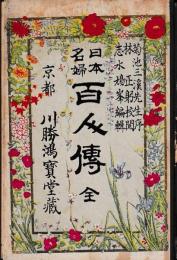 菊池三溪先生序
林正躬校閲
志水鳩峯編輯
日本名婦
百人傳 全
京都 川勝鴻寶堂藏